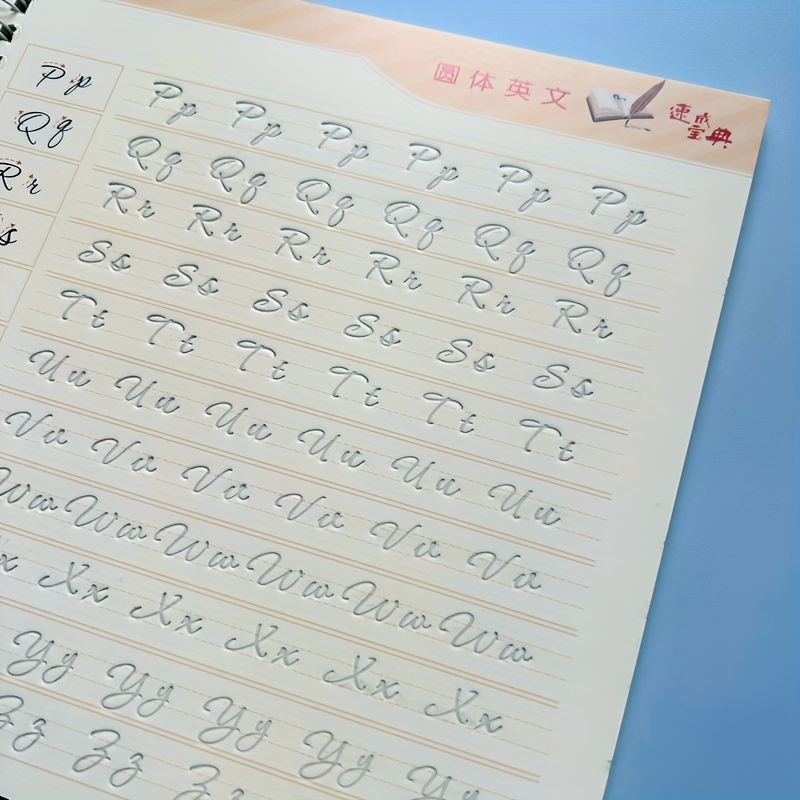 圆体英文
速成宝典
Pp Pp Pp Pp Pp Pp Pp
Qq Qq Qq Qq Qq Qq Qq
Rr Rr Rr Rr Rr Rr Rr
Ss Ss Ss Ss Ss Ss
Tt Tt Tt Tt Tt Tt
Uu Uu Uu Uu Uu Uu
Vv Vv Vv Vv Vv Vv
Ww Ww Ww Ww Ww Ww
Xx Xx Xx Xx Xx
Yy Yy Yy Yy Yy
Zz Zz Zz